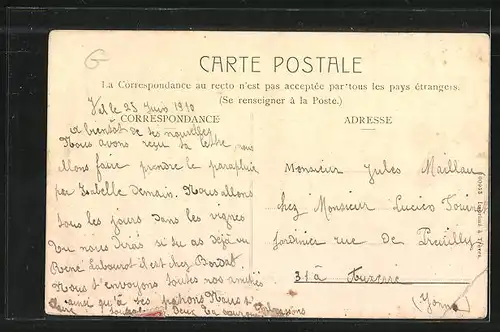 G
CARTE POSTALE
La Correspondance au recto n'est pas acceptée par tous les pays étrangers.
(Se renseigner à la Poste.)
le 25 Juin 1910
CORRESPONDANCE
a bientôt de tes nouvelles
Nous avons reçu ta lettre, nous
allons faire prendre le parapluie
par Isabelle Demain. Nous allons
tous les jours dans les vignes
tu nous diras si tu as déjà vu
René il est chez
Nous t'envoyons toutes nos amitiés
ainsi qu'à tes patrons Nous t'
ADRESSE
Monsieur Jules Maillau
chez Monsieur Lucien
Jardinier rue de Preuilly
31 à Auxerre
(Yonne)